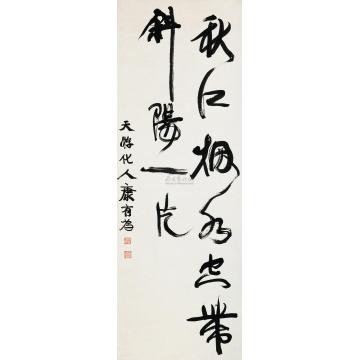 秋江烟水空帶
斜陽一片
天游化人康有為